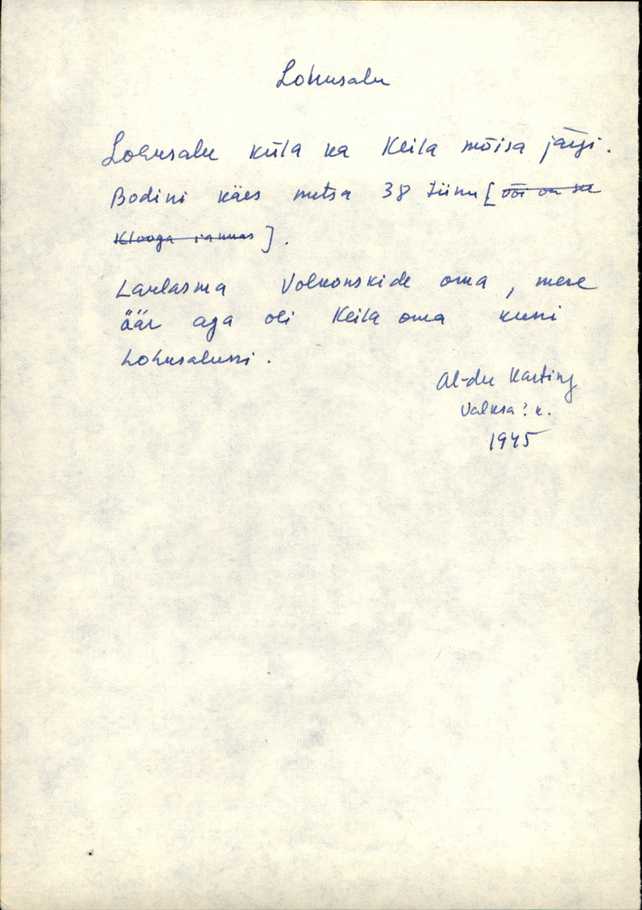 Lohusalu
Lohusalu küla ka Keila mõisa järgi.
Bodini käes metsa 38 tiinu [või va se
Klooga rannas].
Laulasma Volkonskide oma, mere
äär aga oli Keila oma kuni
Lohusaluni.
Al-der Karting
Valksa? k.
1945